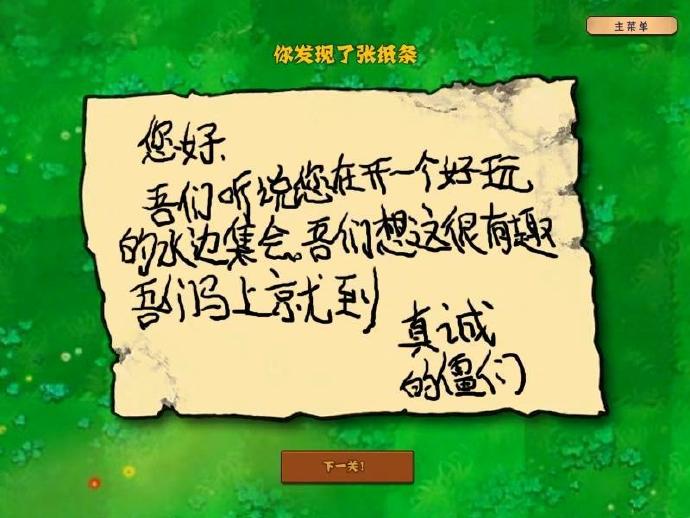 主菜单
你发现了张纸条
您好、
吾们听说您在开一个好玩
的水边集会。吾们想这很有趣
吾们马上就到
真诚
的僵们
下一关!